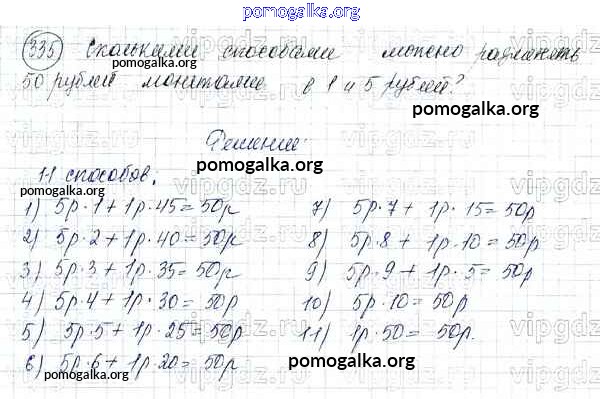 pomogalka.org
335 Сколькими способами можно разменять
pomogalka.org
50 рублей монетами в 1 и 5 рублей?
pomogalka.org
Решение:
pomogalka.org
11 способов:
1) 5р·1 + 1р·45 = 50р
2) 5р·2 + 1р·40 = 50р
3) 5р·3 + 1р·35 = 50р
4) 5р·4 + 1р·30 = 50р
5) 5р·5 + 1р·25 = 50р
6) 5р·6 + 1р·20 = 50р
7) 5р·7 + 1р·15 = 50р
8) 5р·8 + 1р·10 = 50р
9) 5р·9 + 1р·5 = 50р
10) 5р·10 = 50р
11) 1р·50 = 50р.
pomogalka.org
pomogalka.org
pomogalka.org
vipgdz.ru